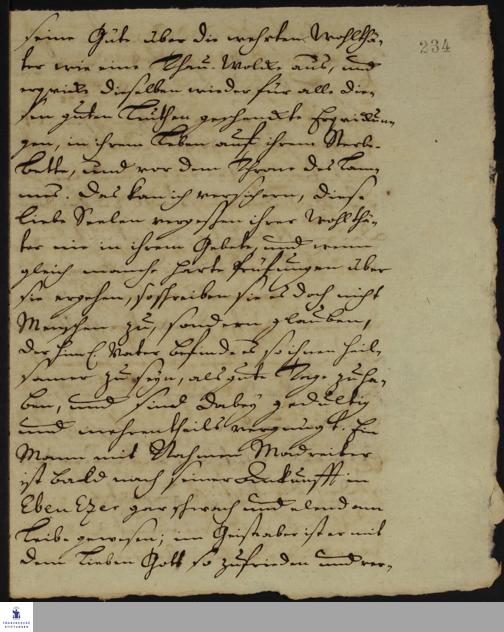 seine Güte über die wehrten Wohlthä-
ter wie eine Thau-Wolke aus, und
erqvicke dieselben wieder für alle die-
sen guten Leuthen geschenckte Erqvickun-
gen, in ihrem Leben auf ihrem Sterbe-
bette, und vor dem Throne des Lam-
mes. Das kan ich versichern, diese
liebe Seelen vergeßen ihrer Wohlthä-
ter nie in ihrem Gebete, und wenn
gleich manche harte Prüfungen über
sie ergehen, so schreiben sie es doch nicht
Menschen zu, sondern glauben,
der himl. Vater befinde es so ihnen heil-
samer zu seyn, als gute Tage zu ha-
ben, und sind dabey gedultig
und mehrentheils vergnügt. Ein
Mann mit Nahmen Madreiter
ist bald nach seiner Ankunfft in
Eben Ezer gar schwach und elend am
Leibe gewesen; im Geist aber ist er mit
dem lieben Gott so zufrieden und ver-
234
FRANCKESCHE
STIFTUNGEN